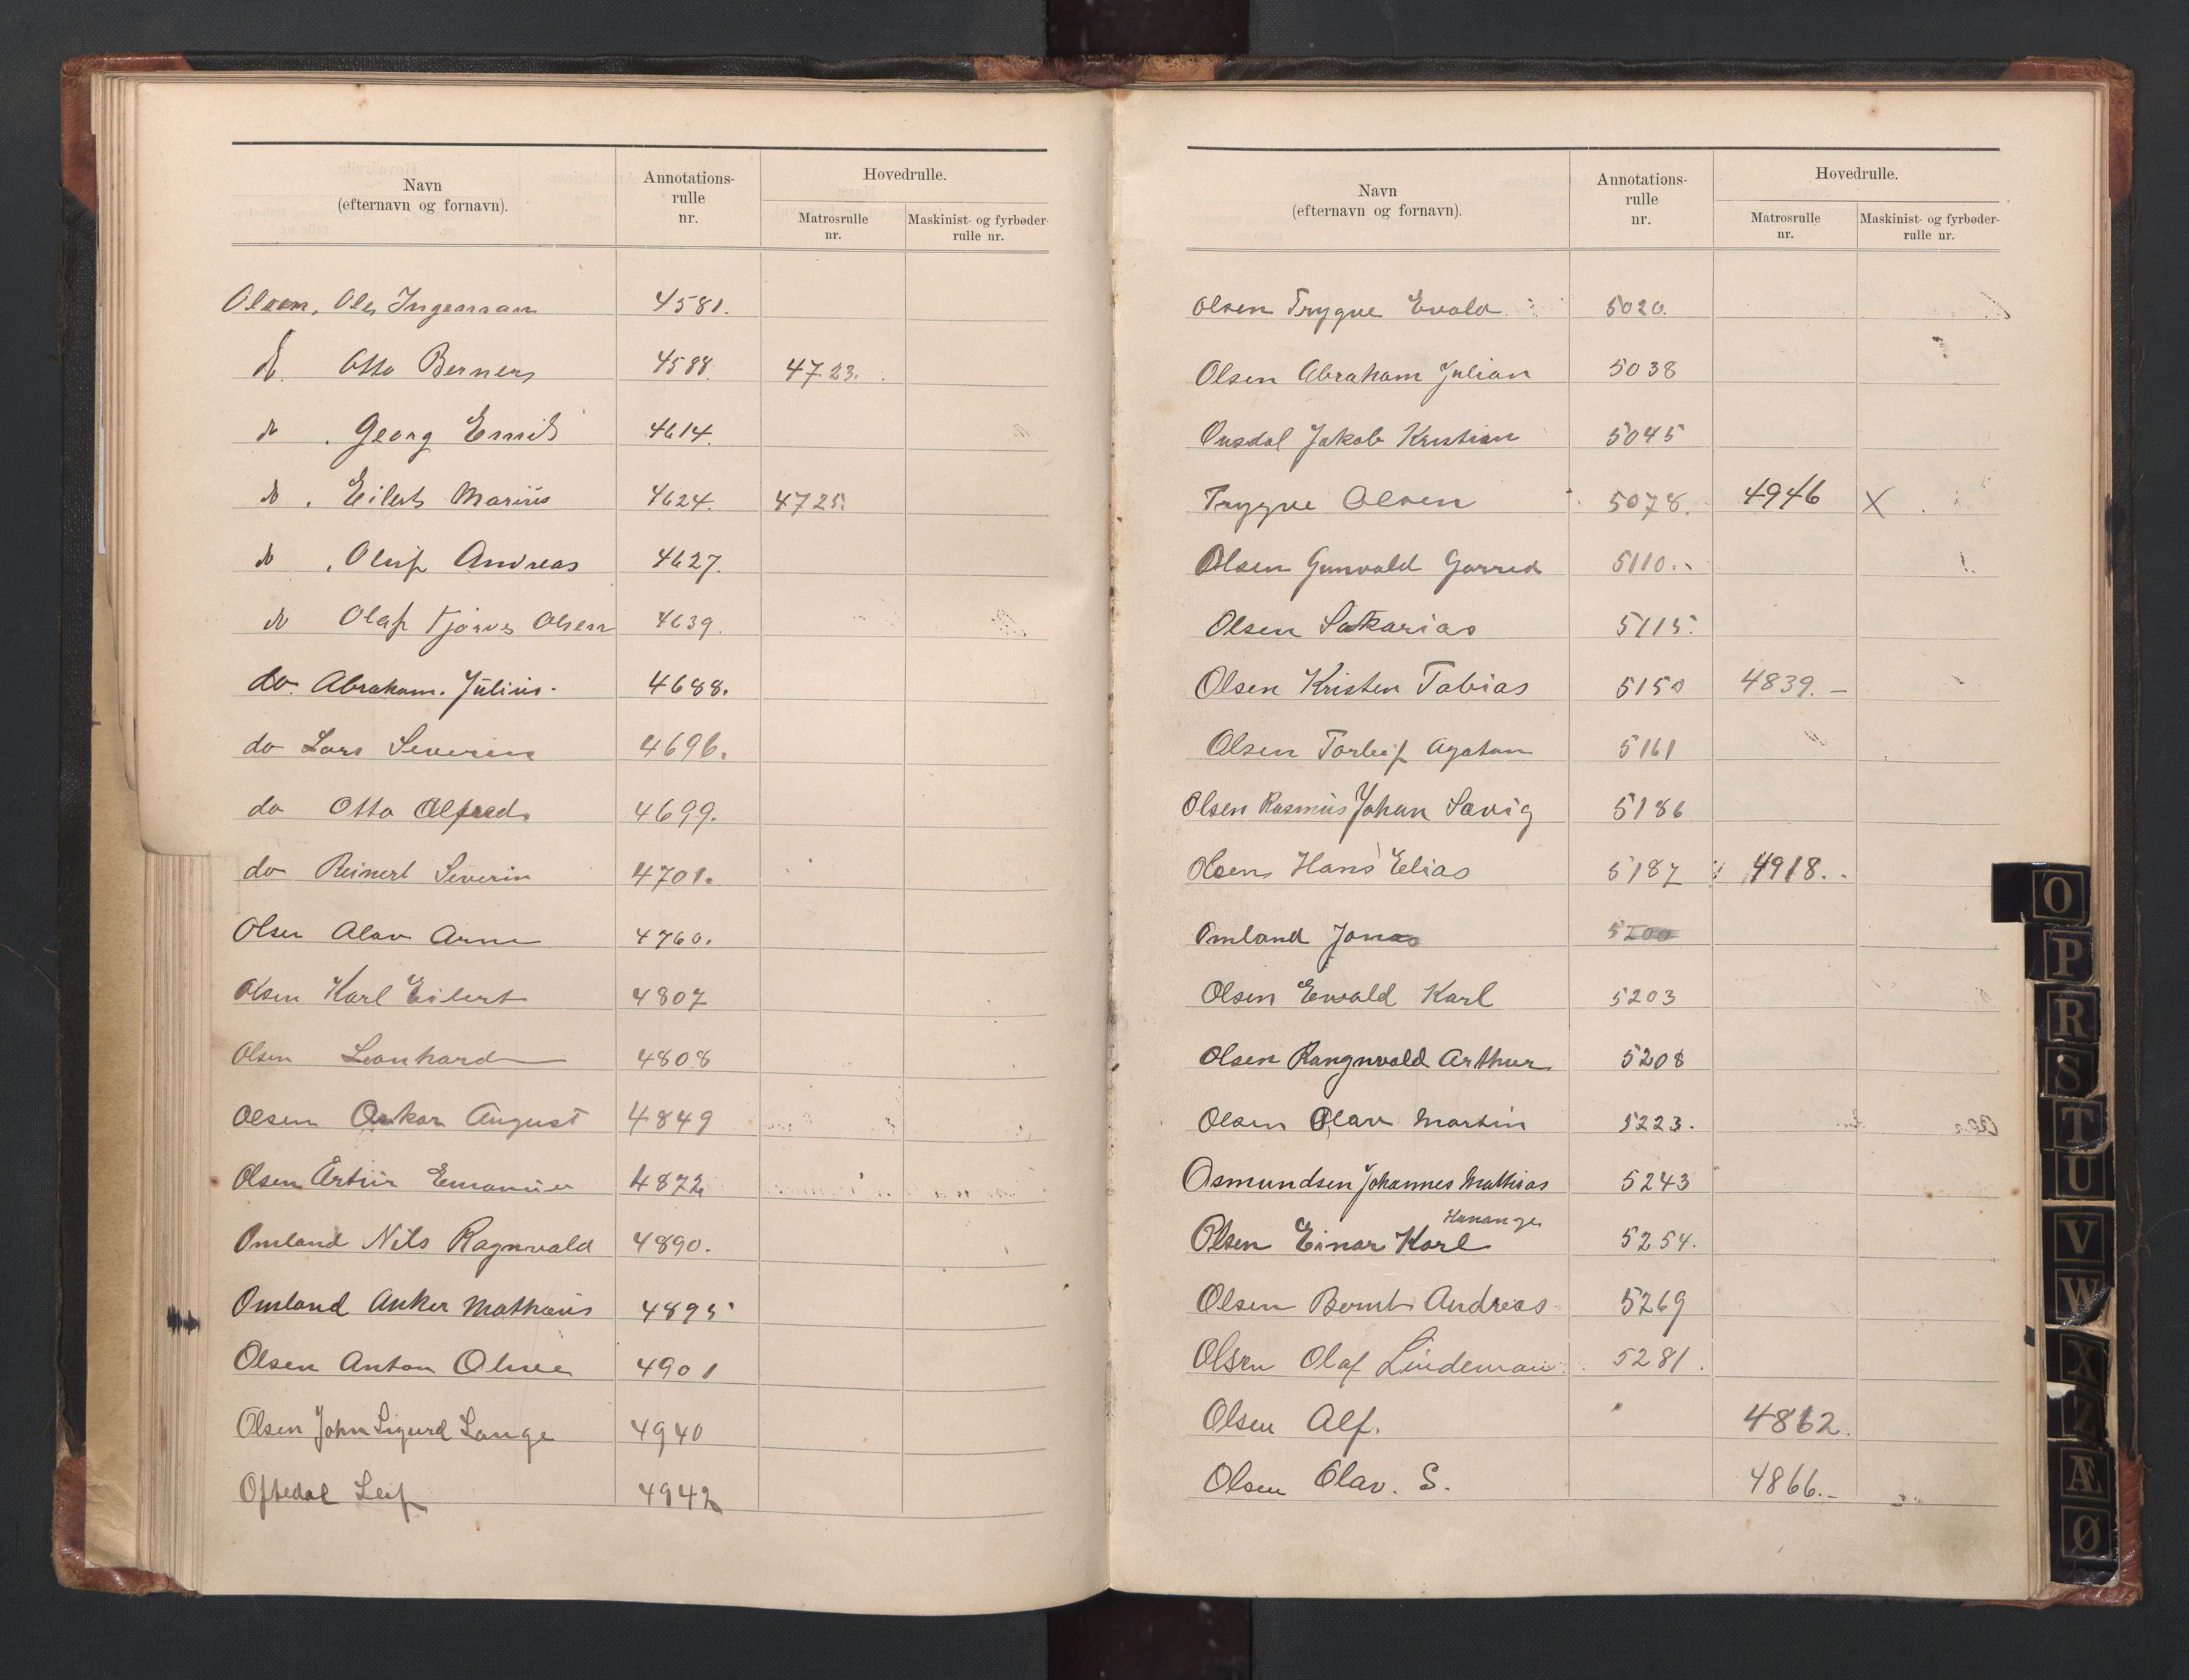 Navn
(efternavn og fornavn).
Annotations-
rulle
nr.
Hovedrulle.
Matrosrulle
nr.
Maskinist- og fyrbøder-
rulle nr.
Olsen, Ole Ingeman 4581.
do Otto Berner 4588. 4723.
do . Georg Emil 4614.
do . Eilert Marius 4624. 4725.
do , Oluf Andreas 4627.
do Olaf Tjørve Olsen 4639.
do. Abraham. Julius. 4688.
do Lars Severin 4696.
do Otto Alfred. 4699.
do Reinert Severin 4701.
Olsen Olav Arne 4760.
Olsen Karl Eilert 4807
Olsen Leonhard 4808
Olsen Oskar August 4849
Olsen Artur Emanuel 4872
Omland Nils Ragnvald 4890.
Omland Anker Mathæus 4895
Olsen Anton Oluee 4901
Olsen John Sigurd Lange 4940
Oftedal Leif 4942
Navn
(efternavn og fornavn).
Annotations-
rulle
nr.
Hovedrulle.
Matrosrulle
nr.
Maskinist- og fyrbøder-
rulle nr.
Olsen Trygve Evald 5020.
Olsen Abraham Julian 5038
Jakob Kristian 5045
Trygve Olsen 5078. 4946 X
Olsen Gunvald Garred 5110.
Olsen Sakarias 5115.
Olsen Kristen Tobias 5150 4839.-
Olsen Torleif Agaton 5161
Olsen Rasmus Johan Søvig 5186
Olsen Hans Elias 5187 4918.
Omland Jonas 5200
Olsen Ewald Karl 5203
Olsen Rangnvald Arthur 5208
Olsen Olav Martin 5223.
Osmundsen Johannes Mathias 5243
Hanange
Olsen Einar Karl 5254.
Olsen Bernt Andreas 5269
Olsen Olaf Lindeman 5281.
Olsen Alf. 4862.
Olsen Olav. S. 4866.-
O
P
R
S
T
U
V
W
X
Z
Æ
Ø